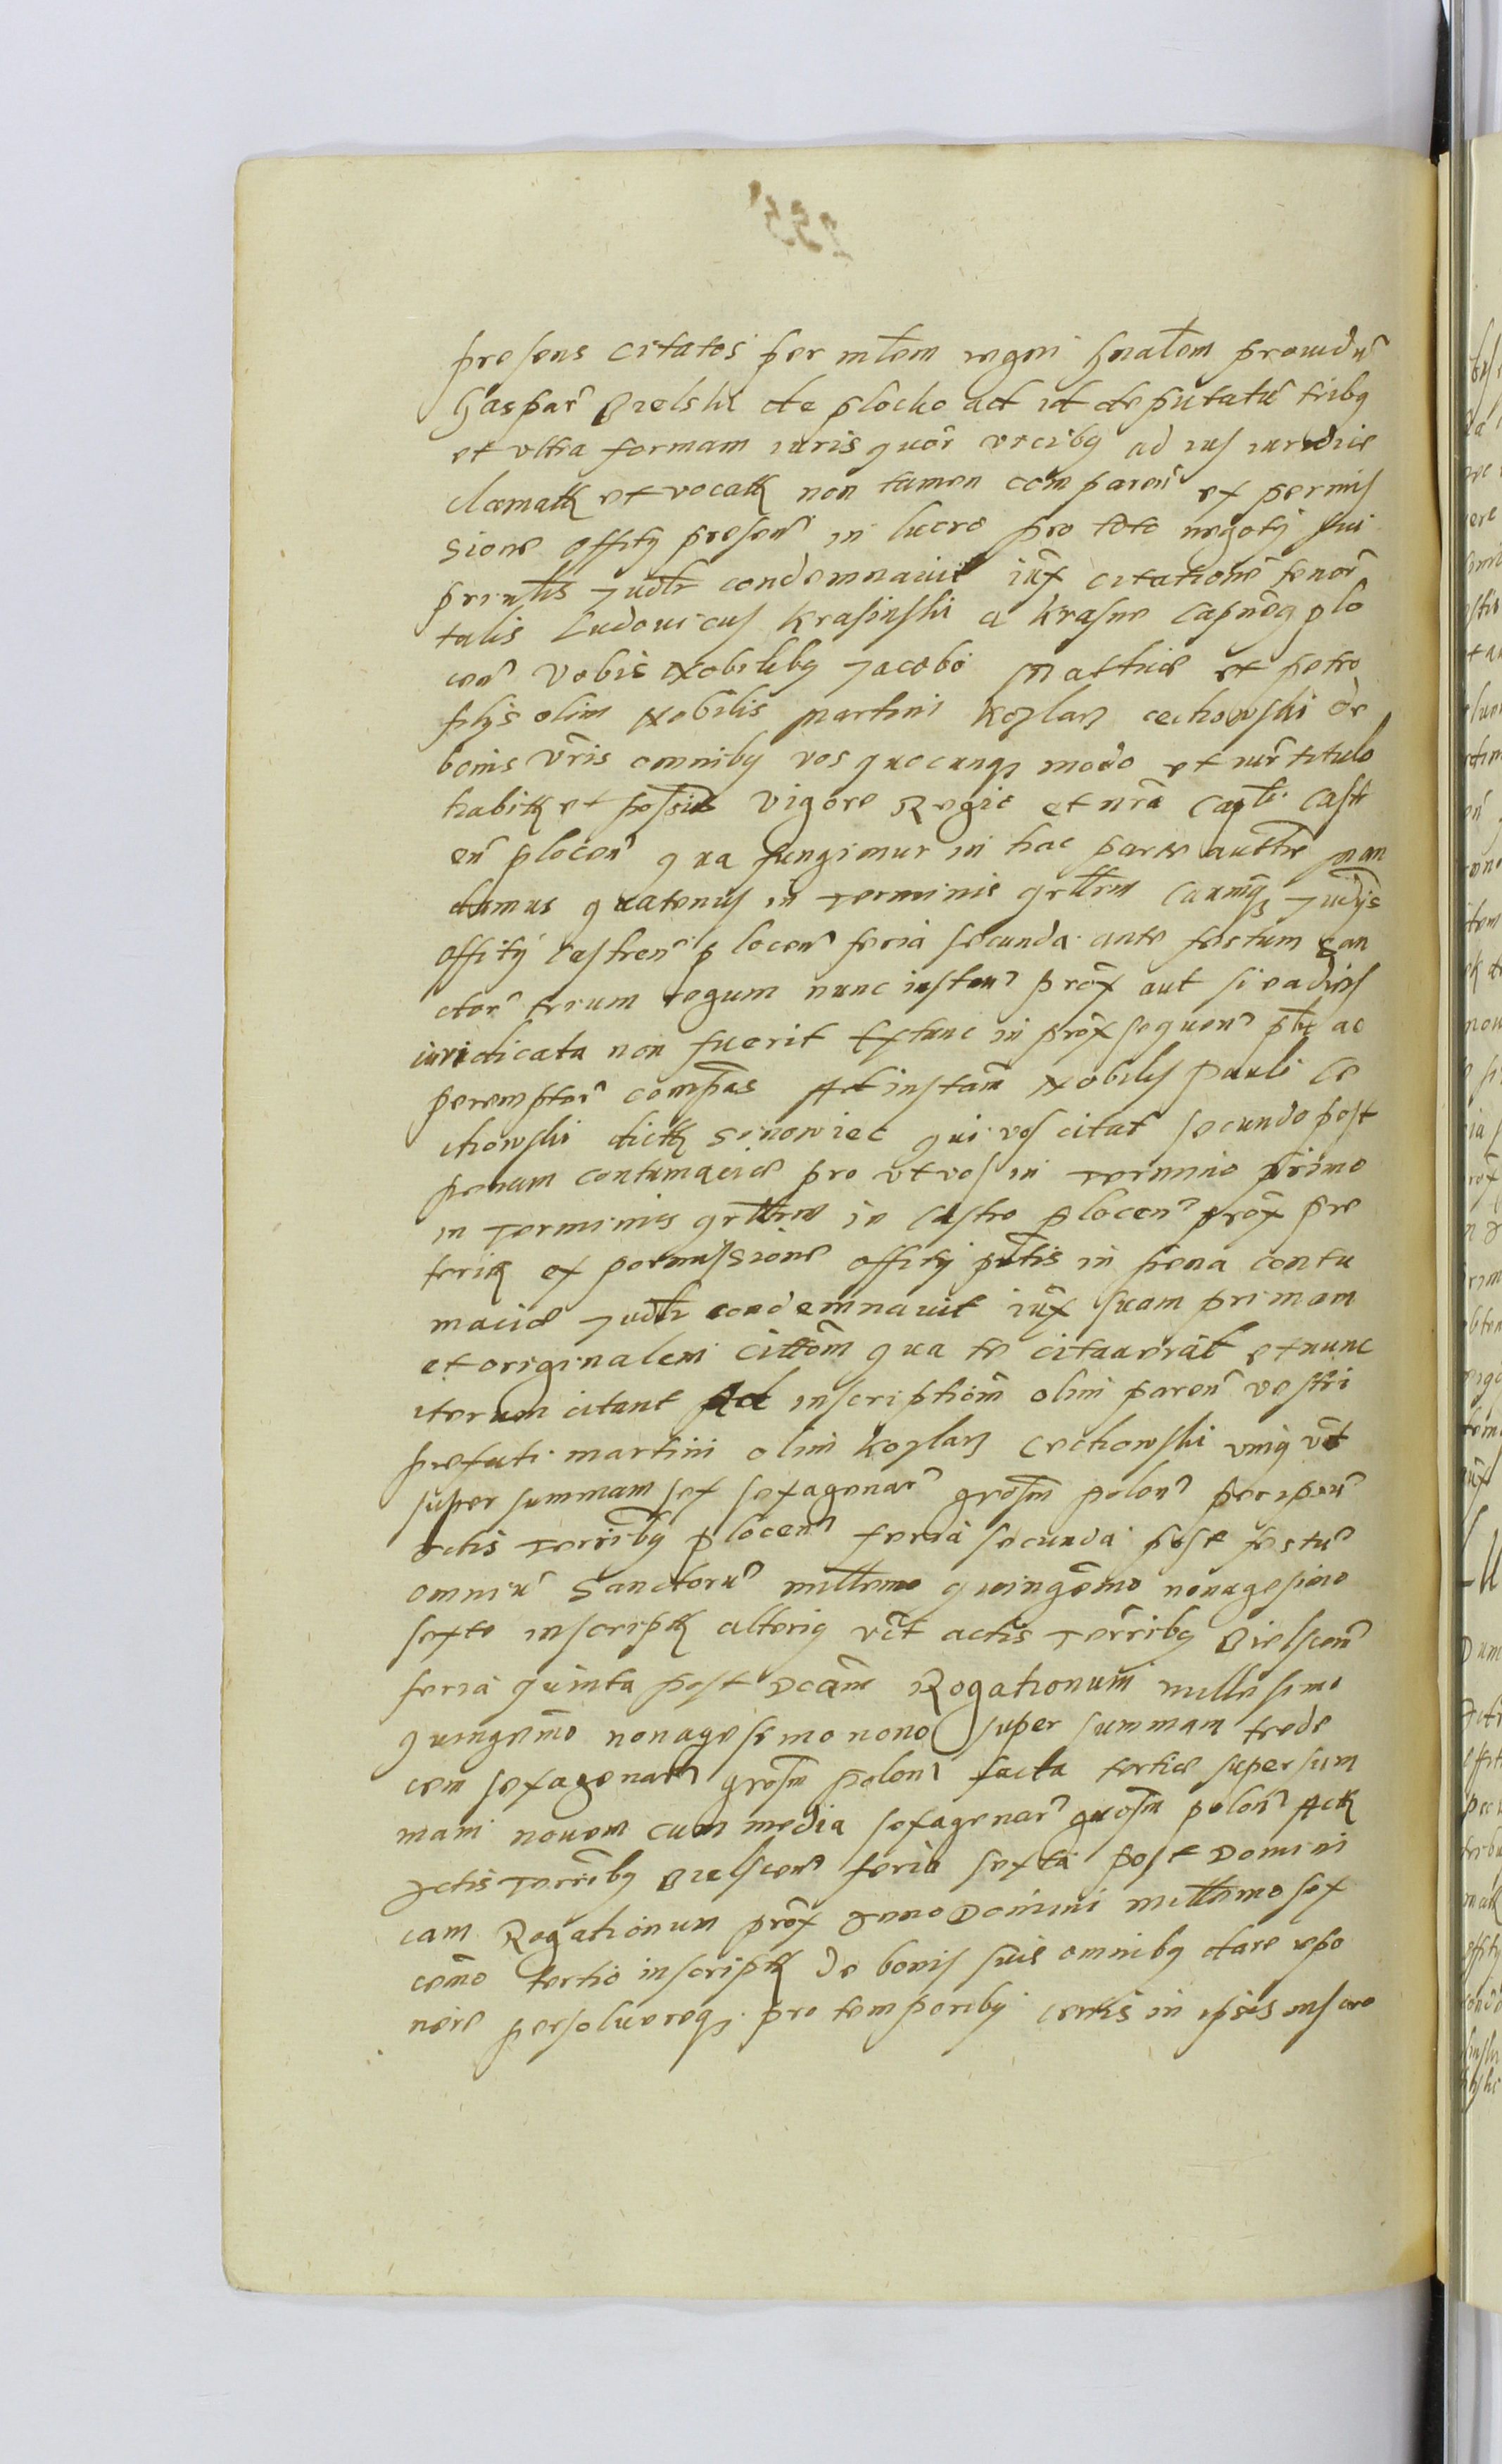 presens citatos per mlem regni gnalem prouidu
Gaspar Bielski de plocko ad id deputatu tribq
et vltra formam iuris quor vicibq ad ius iuridice
clamatt et vocatt non tamen comparen ex permis
sione offity presen in lucro pro toto negoty sui
printis Judlr condemnauit iux citationē tenor
talis Ludouicus Krasinski a Krasne Capneq plo
cen Vobis Nobilibq Jacobo Mathie et petro
filijs olim Nobilis Martini Kozlarz cechowski de
bonis vris omnibq vos quocunq modo et iur titulo
habitt et possid Vigore Regie et nra Captli Castr
en plocen qua fungimur in hac parte autthe man
damus quatenus in Terminis qrllrm Caumq Judijs
offity Castren plocen feria secunda ante festum san
ctor trium regum nunc instan prox aut si eadies
iuridicata non fuerit Extunc in prox sequen pbt ac
peremptor compas Ad instam Nobilis Pauli Ce
chowski dictt Sinowiec qui vos citat secundo post
penam contumacie pro vt vos in Termino primo
in Terminis qrllrm in Castro plocen prox pre
teritt ex permissione offity pntis in pena contu
macie Judlr condemnauit iux suam primam
et originalem cittom qua te citauerat et nunc
iterum citant Ad inscriptiom olim paren vestri
prefati martini olim Kozlarz Cechowski vniq vct
super summam sex sexagenar grossm polon per ipsu
Actis Terribq plocen feria secunda post festu
omniu Sanctoru millemo quingemo nonagesimo
sexto inscriptt alteriq vct actis Terribq Bielscen
feria quinta post Dcam Rogationum millesimo
quingemo nonagesimo nono super summam trede
cem sexagenar grossm polon facta tertie super sum
mam nouem cum media sexagenar grossm polon Actt
Actis Terribq Bielscen feria sexta post Domini
cam Rogationum prox Anno Domini millemo sex
cemo tertio inscriptt de bonis suis omnibq dare repo
nere persoluereq pro temporibq certis in ipsis inscre